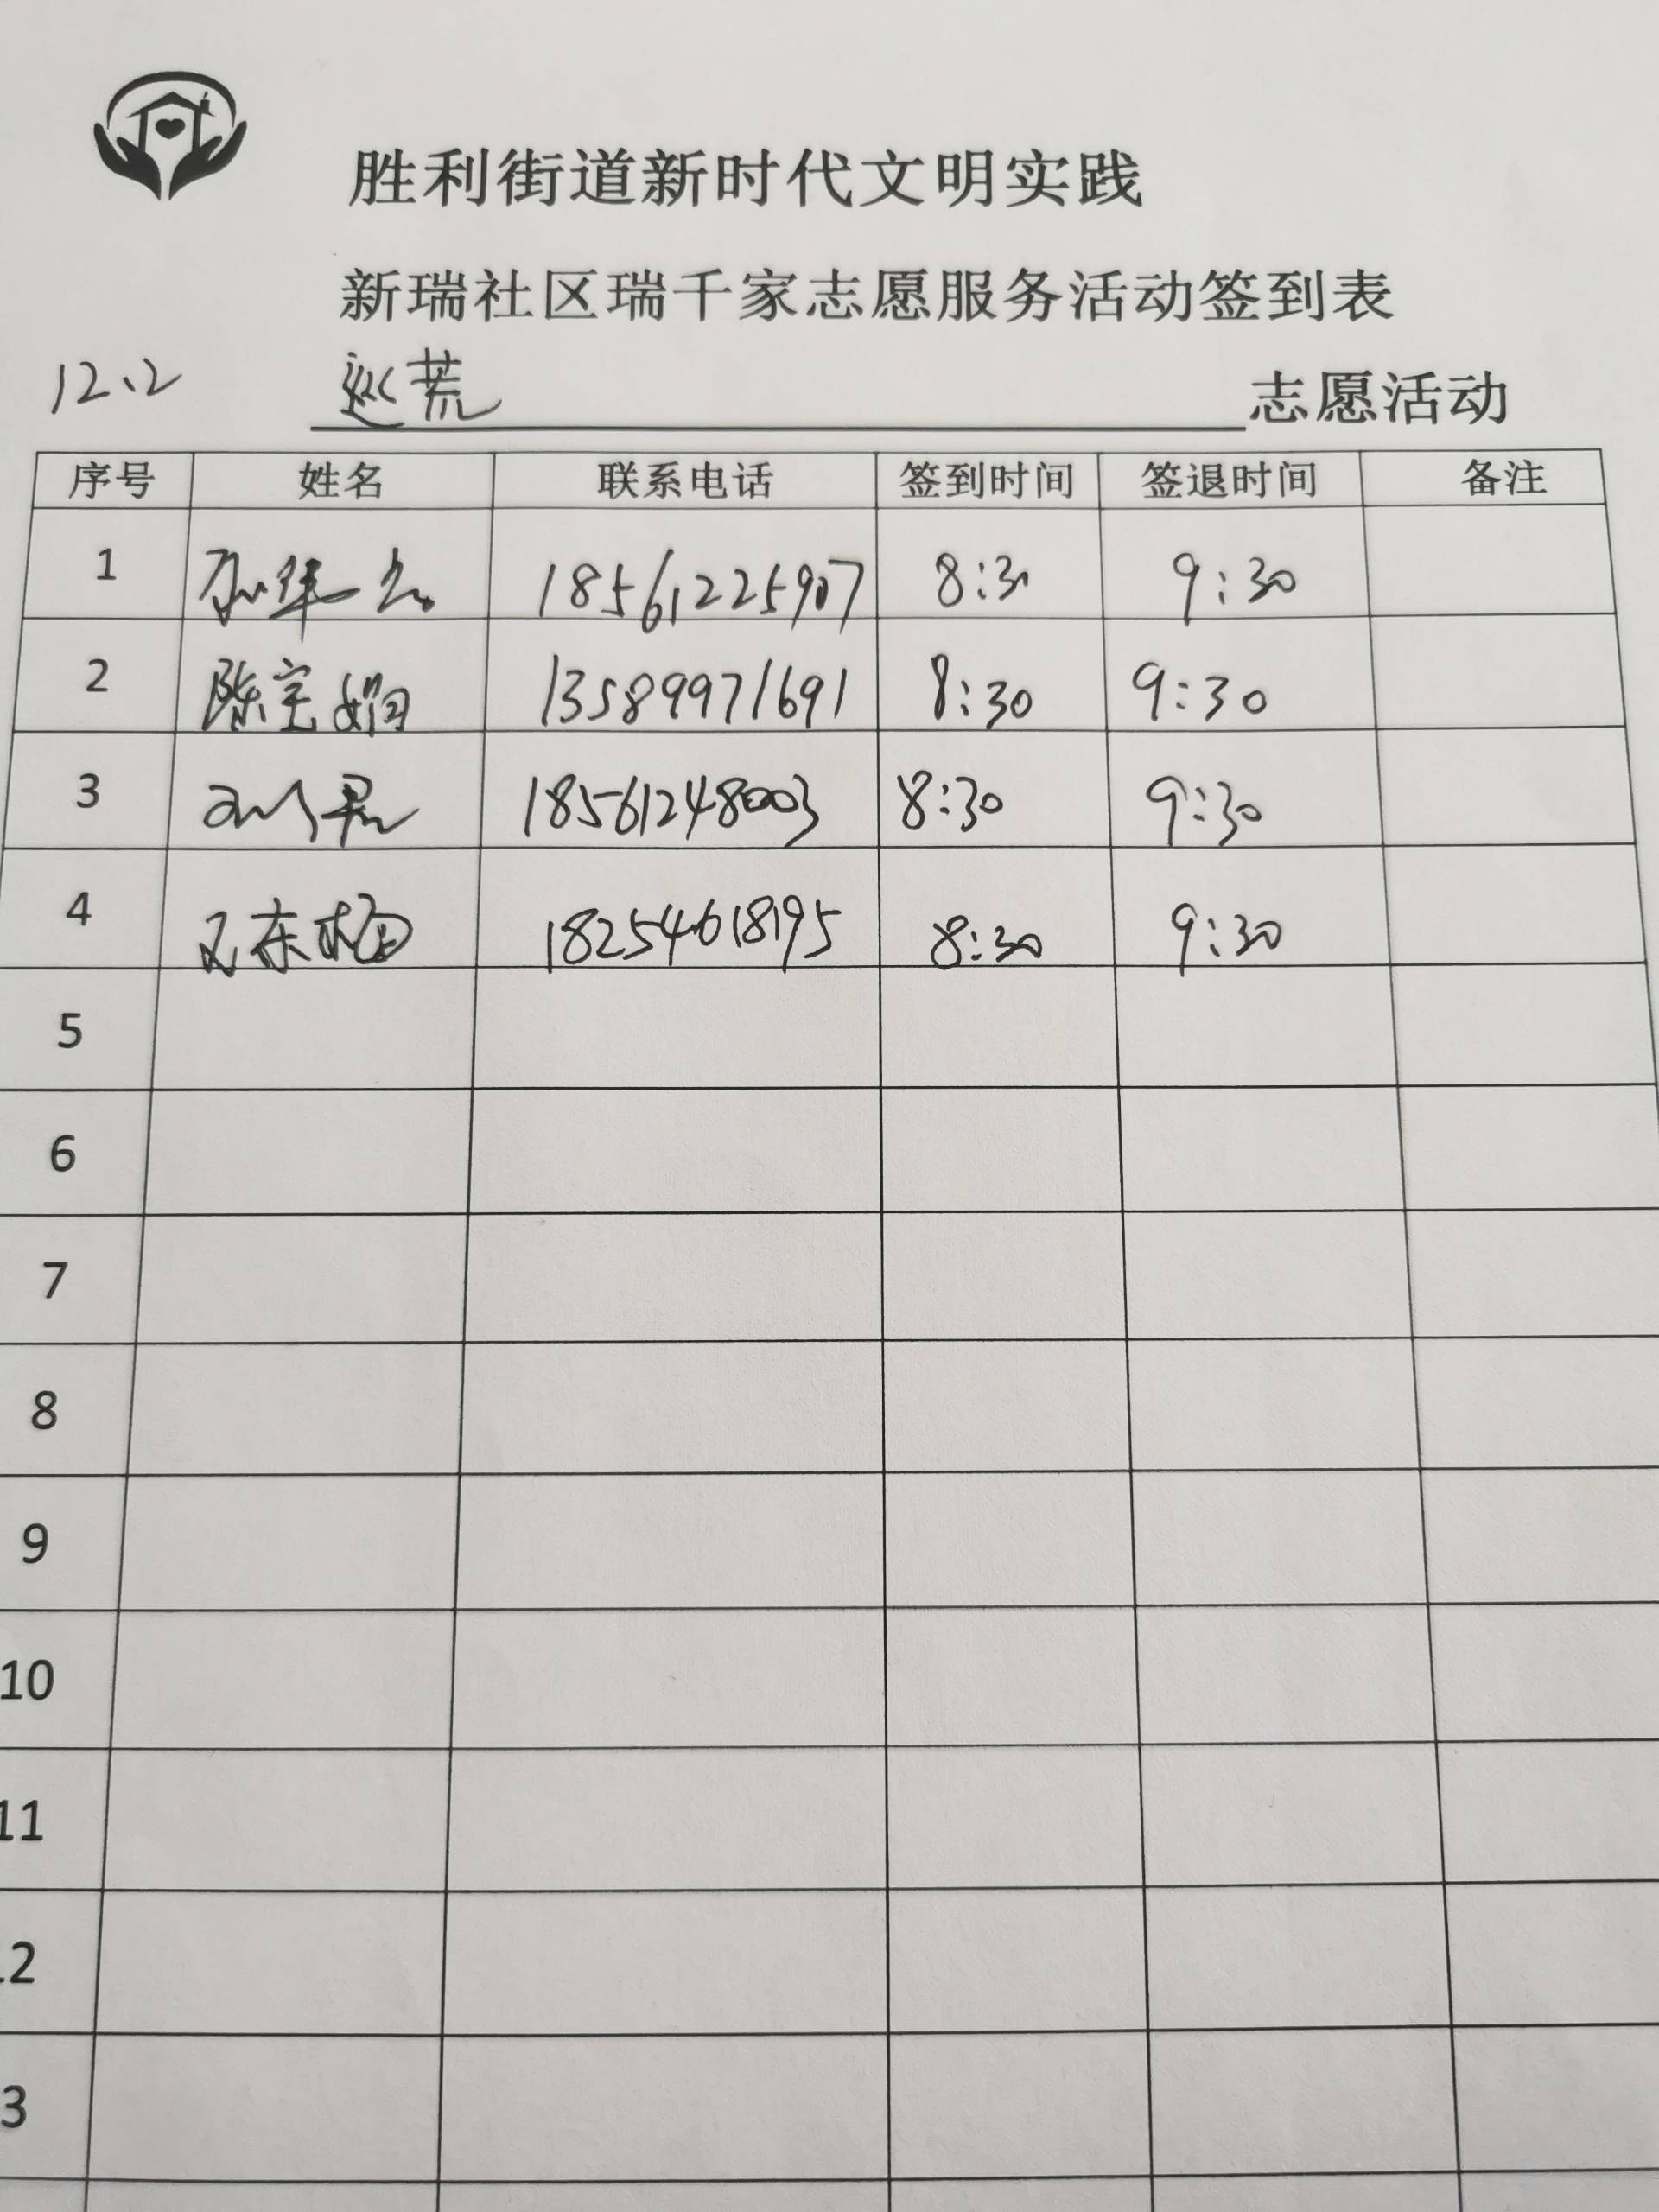 胜利街道新时代文明实践
新瑞社区瑞千家志愿服务活动签到表
12.2 巡荒 志愿活动
序号 姓名 联系电话 签到时间 签退时间 备注
1 18561225907 8:30 9:30
2 陈宝娟 13589971691 8:30 9:30
3 18561248003 8:30 9:30
4 王东梅 18254618195 8:30 9:30
5
6
7
8
9
10
11
12
13